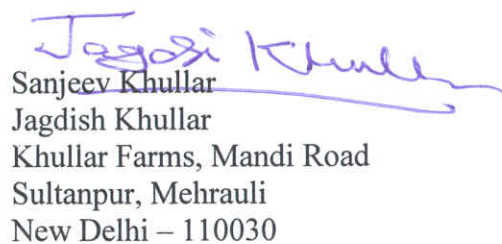 Jagdsi Khuller
Sanjeev Khullar
Jagdish Khullar
Khullar Farms, Mandi Road
Sultanpur, Mehrauli
New Delhi – 110030